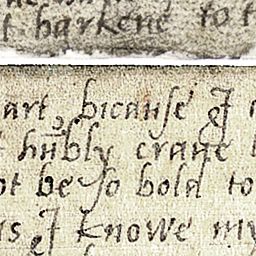 t harkene to t
art, bicause I
hūbly crave
ot be so bold to
is I knowe my